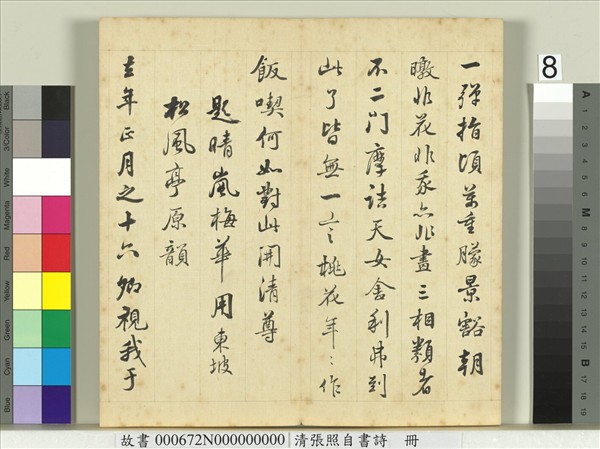 一彈指頃萬重朦景豁朝
暾非花非我亦非畫三相類者
不二門摩詰天女舍利弗到
此了皆無一言桃花年〻作
飯喫何如對此開清尊
題晴嵐梅華用東坡
松風亭原韻
去年正月之十六卿視我于
8
故書 000672N000000000 清張照自書詩 冊
Black
3/Color
White
Magenta
Red
Yellow
Green
Cyan
Blue
A
1
2
3
4
5
6
M
8
9
10
11
12
13
14
15
B
17
18
19